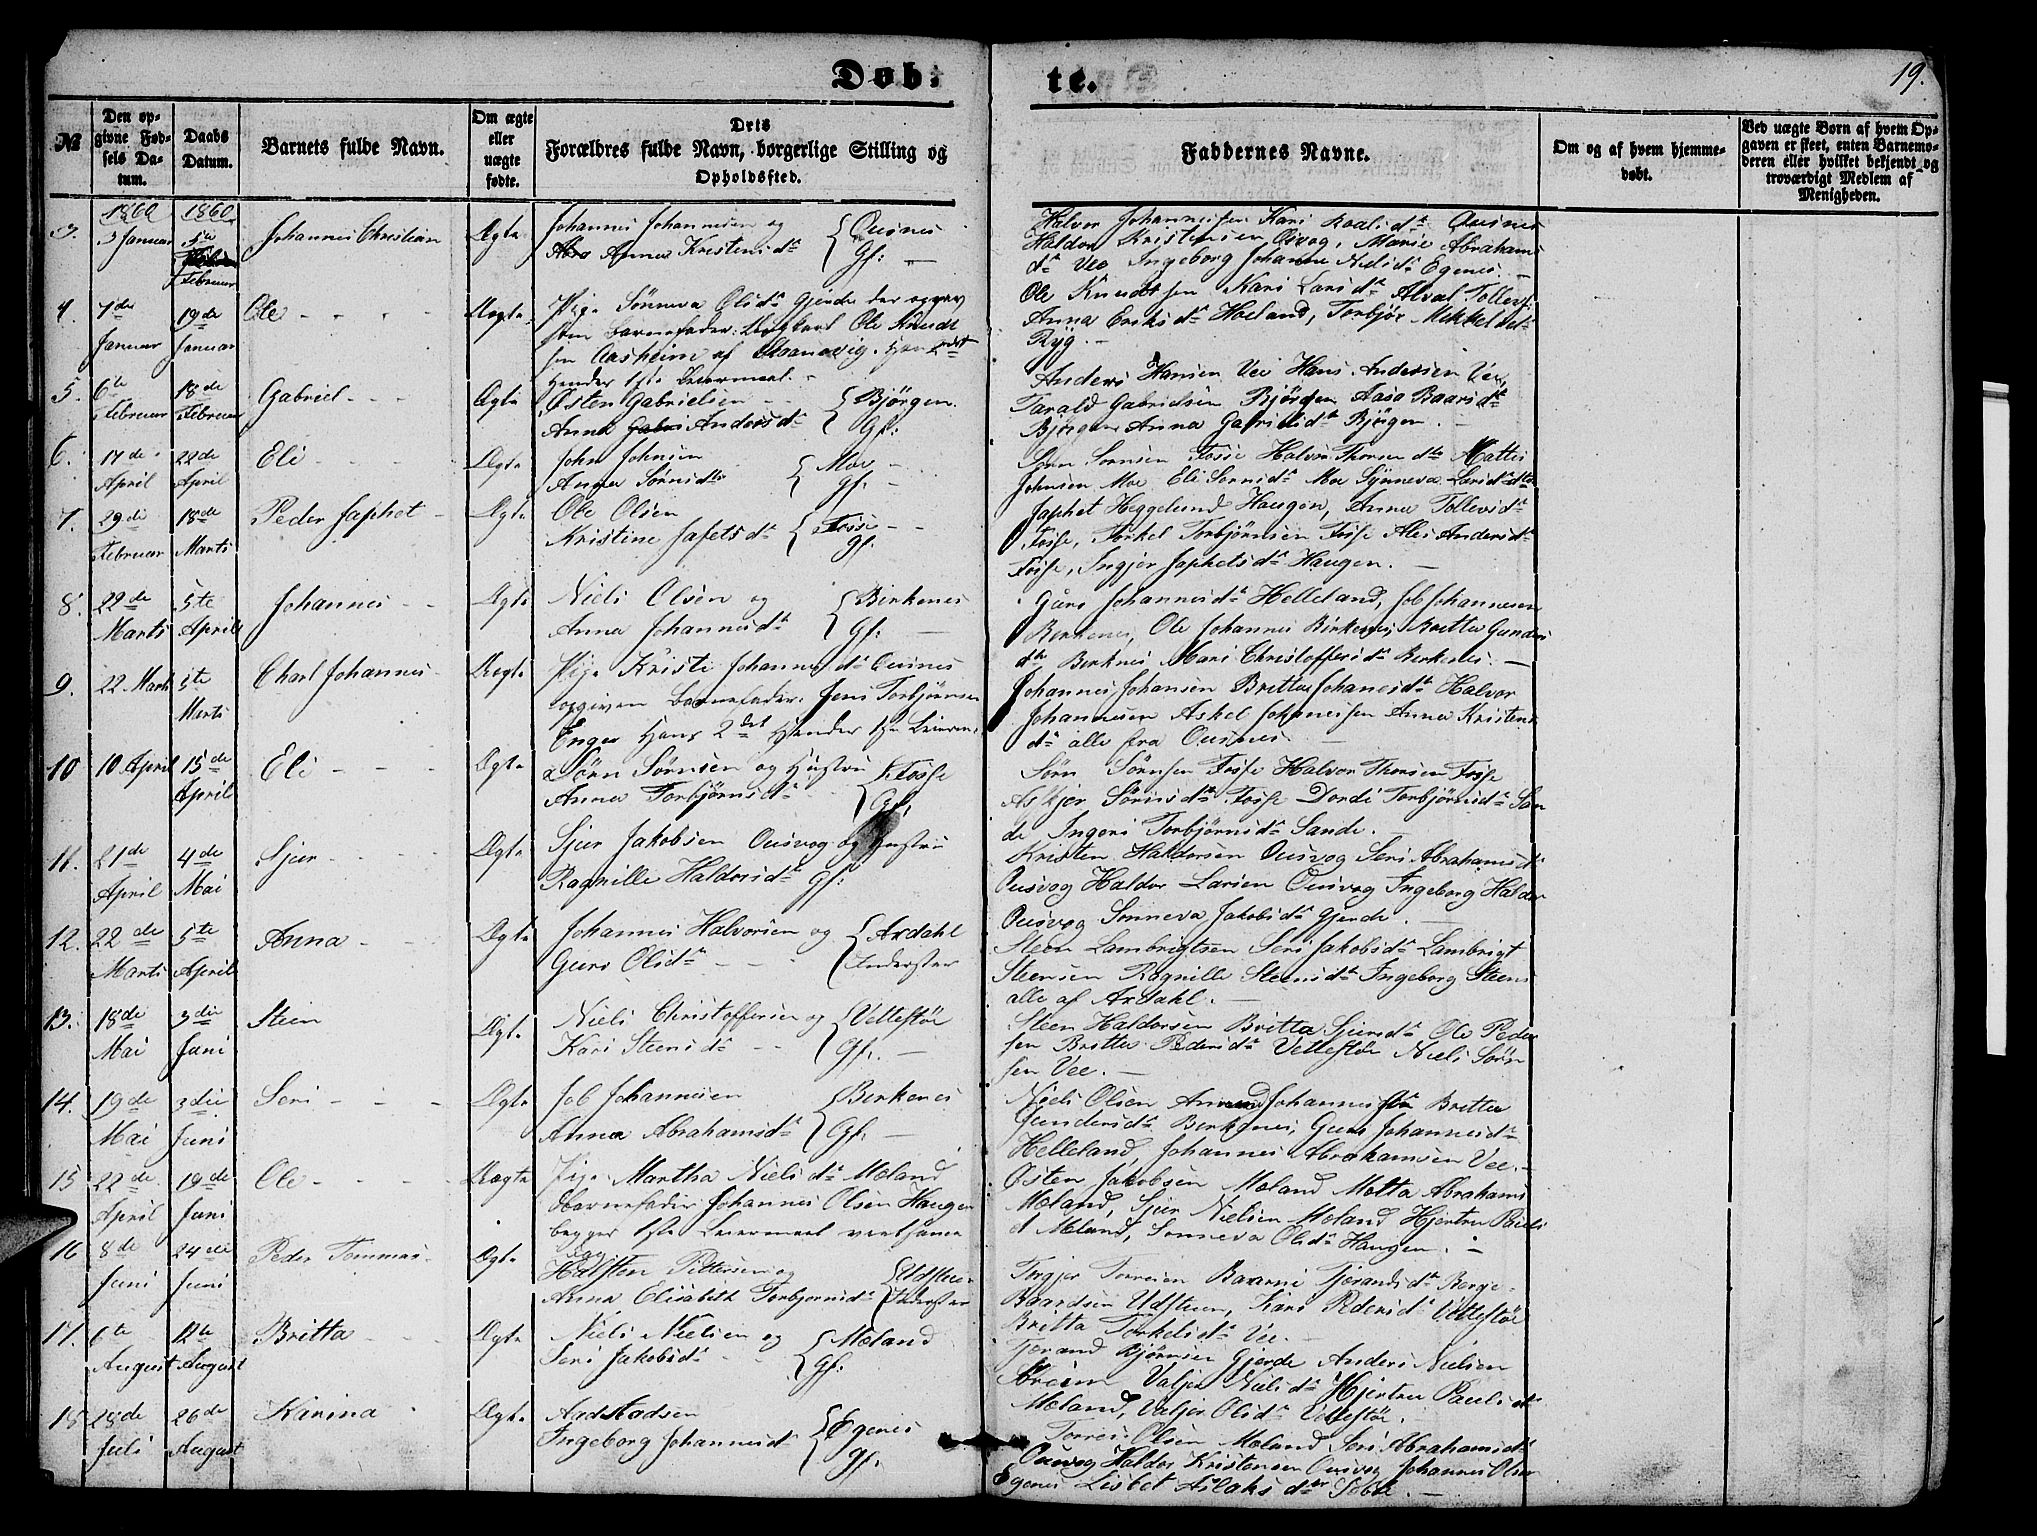 Døb-
te.
19.
№
Den op-
givne Fød-
sels Da-
tum.
Daabs
Datum.
Barnets fulde Navn.
Om ægte
eller
uægte
fødte.
Dets
Forældres fulde Navn, borgerlige Stilling og
Opholdssted.
Faddernes Navne.
Om og af hvem hjemme-
døbt.
Ved uægte Børn af hvem Op-
gaven er skeet, enten Barnemo-
deren eller hvilket bekjendt og
troværdigt Medlem af
Menigheden.
1860 1860
3. 3 Januar 5te Februar Johannes Christian Ægte
Johannes Johannesen og Ousnes
Anna Kristensdr Gf:
Halvor Johannessen Kari Roalsdr Ousnes
Haldor Kristensen Osvog, Marie Abrahams
dr Vee Ingeborg Johanne Nielsdr Egenes.
4. 7de Januar 19de Januar Ole Uægte
Pige Sønneva Olsdr Gjerde der opgav
som Barnefader: Ungkarl Ole Knudt
sen Aasheim af
Henders 1ste Leiermaal.
Ole Knudtsen Kari Larsdr
Anna Eriksdr Høeland, Torbjør Mikkelsdr
Ryg.
5. 6te Februar 18de Februar Gabriel Ægte
Østen Gabrielsen Bjørgen
Anna Andersdr Gf:
Anders Hansen Vee Hans Andersen Vee,
Tarald Gabrielsen Bjørgen Aasa Baarsdr
Bjørgen Anna Gabrielsdr Bjørgen.
6. 17de April 22de April Eli Ægte
John Johnsen Moe
Anna Sørnsdtr gf:
Sørn Sørnsen Fosse Halvor Thorsen dto Mattis
Johnsen Moe Eli Sørnsdr Moe Synneva Larsdr dto
7. 29de Februar 18de Marts Peder Japhet Ægte
Ole Olsen Fosse
Kristine Jafetsdr gf.
Japhet Heggelund Haugen, Anna Tollevsdr
Fosse, Torkel Torbjørnsen Fosse Ales Andersdr
Fosse, Ingjer Japhetsdr Haugen.
8. 22de Marts 5te April Johannes Ægte
Niels Olsen og Birkenes
Anna Johannesdr Gf:
Guro Johannesdr Helleland, Job Johannesen
Berkenes, Ole Johannes Birkenes, Britta Gunders
dr Berknes Mari Christoffersdr Berkenes.
9. 22 Marts 5te Marts Charl Johannes Uægte
Pige Kristi Johannesdr Ousnes
opgiven Barnefader: Jens Torbjørnsen
Enge Hans 2det Hendes 1ste Leierm.
Johannes Johansen Britta Johanesdr Halvor
Johannesen Askel Johannessen Anna Kristens
dr alle fra Ousnes.
10 10 April 15de April Eli Ægte
Sørn Sørnsen og Hustru Fosse
Anna Torbjørnsdr Gf:
Sørn Sørnsen Fosse Halvor Thorsen Fosse
Askjer Sørnsdr Fosse Dordi Torbjørnsdr San
de Ingeri Torbjørnsdr Sande.
11. 21de April 4de Mai Sjur Ægte
Sjur Jakobsen Ousvog og Hustru
Ragnille Haldorsdr Gf:
Kristen Haldorsen Ousvog Seri Abrahamsdr
Ousvog Haldor Larsen Ousvog Ingeborg Haldor
Ousvog Sønneva Jakobsdr Gjerde.
12. 22de Marts 5te April Anna Ægte
Johannes Halvorsen og Ardahl
Guro Olsdr Inderster
Steen Lambrigtsen Seri Jakobsdr Lambrigt
Steensen Ragnille Steensdr Ingeborg Steens
alle af Ardahl.
13. 18de Mai 3die Juni Stein Ægte
Niels Christoffersen og Vettestøe
Kari Steensdr Gf.
Steen Haldorsen Britta Sjursdr Ole Peder
sen Britta Pedersdr Vettestøe Niels Sørn
sen Vee.
14. 19de Mai 3die Juni Seri Ægte
Job Johannesen Birkenes
Anna Abrahamsdr Gf:
Niels Olsen Johannes Britta
Gundersdr Berkenes, Guro Johannesdr
Helleland, Johannes Abrahamsen Vee.
15 22de April 19de Juni Ole Uægte
Pige Martha Nielsdr Moeland
Barnefader Johannes Olsen Haugen
begges 1ste Leiermaal
Østen Jakobsen Moeland Metta Abrahams
Moeland, Sjur Nielsen Moeland Hjertru Pauls
d Moeland, Sonneva Olsdr Haugen.
16 8de Juni 24de Juni Peder Tommas Ægte
Halsten Pittersen og Udsteen
Anna Elisabeth Torbjornsdr Inderster
Torgjer Torresen Baarni Tjerandsdr Berge
Baardsen Udsteen, Kari Pedersdr Vettestøe
Britta Torkelsdr Vee.
17. 6te August 12te August Britta Ægte
Niels Nielsen og Moeland
Seri Jakobsdr Gf:
Tjerand Bjørnsen Gjerde Anders Nielsen
Valjer Nielsdr Hjertru Pauls dr
Moeland, Valjer Olsdr Vettestøe.
18 28de Juli 26de August Karina Ægte
Aad Aadsen Egenes
Ingeborg Johannesdr Gf.
Torres Olsen Moeland Seri Abrahamsdr
Ousvog Haldor Kristensen Ousvog Johannes Olsen
Egenes Lisbet Aslaksdtr Søbøe.